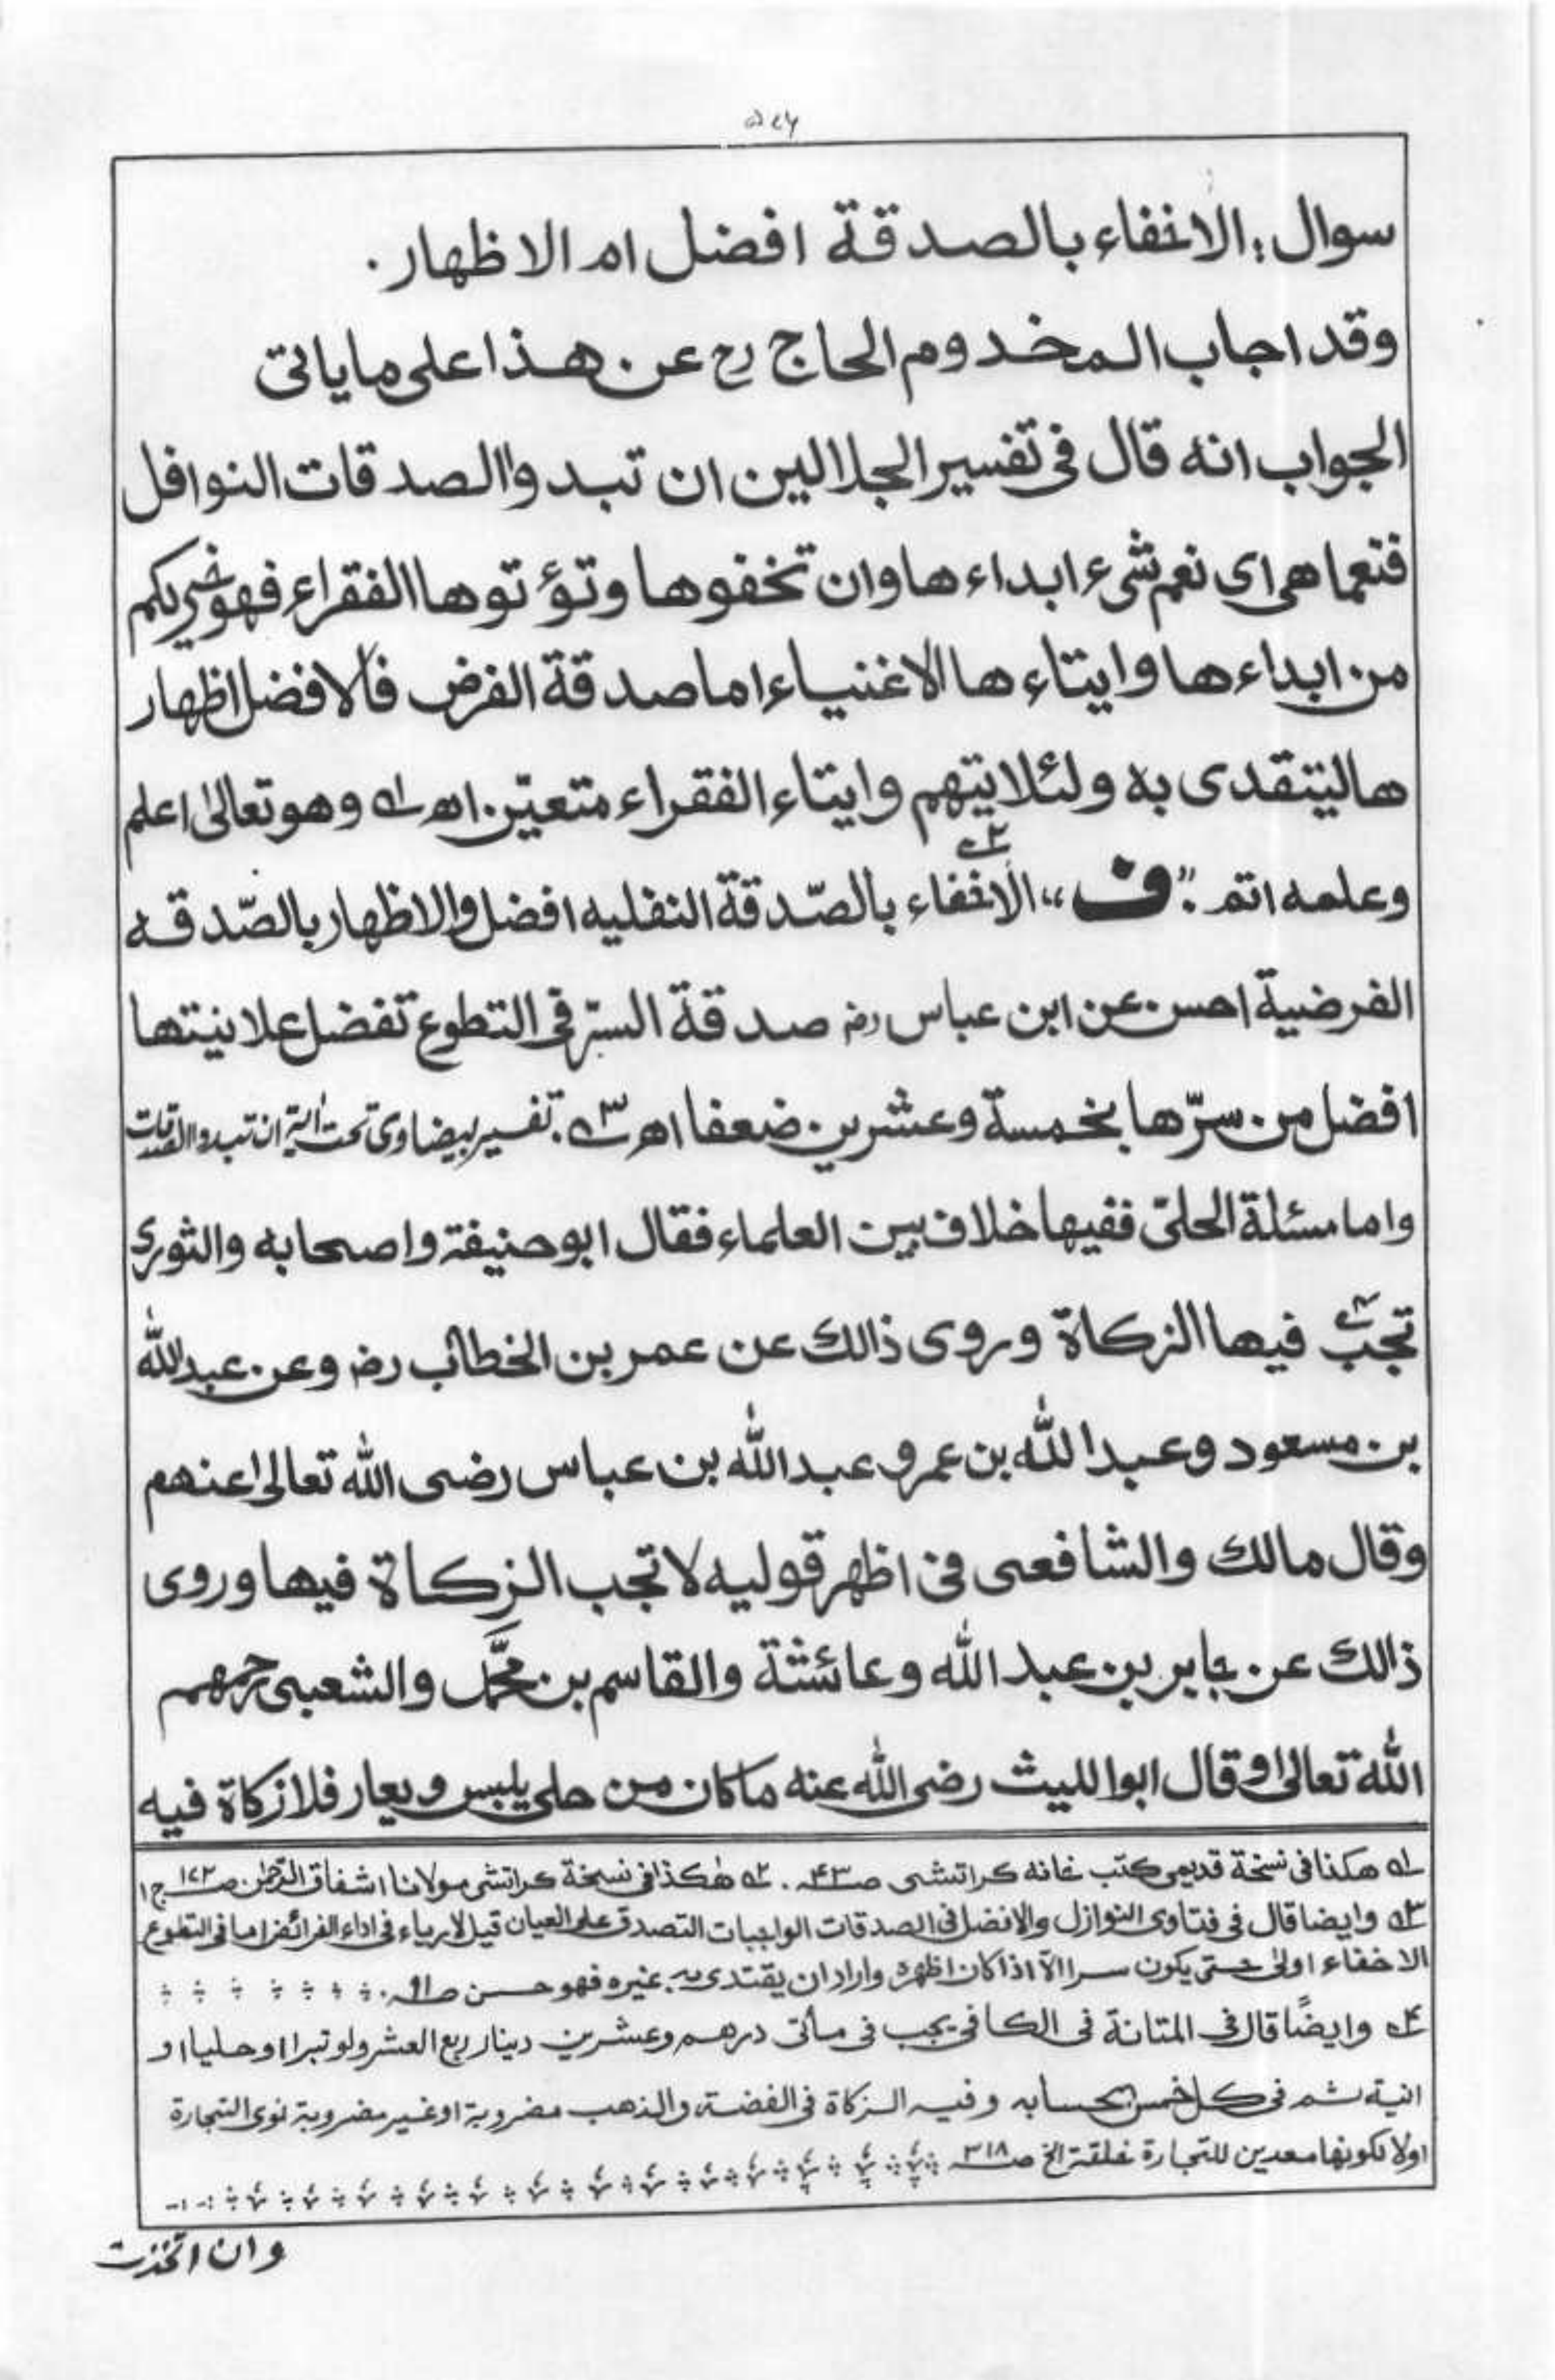 ۵۷۶
سوال : الاخفاء بالصدقة افضل ام الاظهار .
وقد اجاب المخدوم الحاج رح عن هذا على ما ياتى
الجواب انه قال فى تفسير الجلالين ان تبدوا الصدقات النوافل
فنعما هى اى نعم شىء ابداءها وان تخفوها وتؤتوها الفقراء فهو خير لكم
من ابداءها وايتاءها الاغنياء اما صدقة الفرض فالافضل اظهار
ها ليتقدى به ولئلا يتهم وايتاء الفقراء متعيّن. اھ لہ وهو تعالىٰ اعلم
وعلمه اتم . "ف" ٢ الاخفاء بالصّدقة النفليه افضل والاظهار بالصّدقه
الفرضية احسن عن ابن عباس رضه صدقة السرّ فى التطوع تفضل علانيتها
افضل من سرّها بخمسة وعشرين ضعفا اھ ٣ہ. تفسير بيضاوى تحت اٰية ان تبدوا الصدقات
واما مسئلة الحلىّ ففيها خلاف بين العلماء فقال ابو حنيفة واصحابه والثورى
تجب ٤ فيها الزكاة وروى ذالك عن عمر بن الخطاب رضه وعن عبدالله
بن مسعود وعبدالله بن عمرو عبدالله بن عباس رضى الله تعالىٰ عنهم
وقال مالك والشافعى فى اظهر قوليه لا تجب الزكاة فيها وروى
ذالك عن جابر بن عبد الله وعائشة والقاسم بن محمّد والشعبى رحمهم
الله تعالىٰ وقال ابوا لليث رضى الله عنه ما كان من حلى يلبس ويعار فلا زكاة فيه
لہ هكذا فى نسخة قديمى كتب خانه كراتشى صـ ٤٣ . ٢ہ هٰكذا فى نسخة كراتشى مولانا اشفاق الرحمٰن صـ ١٧٢ ج ١
٣ہ وايضا قال فى فتاوى النوازل والافضل فى الصدقات الواجبات التصدق على العيان قيل لا رياء فى اداء الفرائض اما فى التطوع
الاخفاء اولىٰ حتى يكون سرا الآ اذا كان اظهره واراد ان يقتدى به غيره فهو حسن صـ ٩١ .
٤ہ وايضًا قال فى المتانة فى الكافى يجب فى مأتى درهم وعشرين دينار ربع العشر ولو تبرا او حليا او
انية ثم فى كل خمس بحسابه وفيه الزكاة فى الفضة والذهب مضروبة او غير مضروبة نوى التجارة
اولا لكونها معدين للتجارة خلقة الخ صـ ٣١٨
وان اتخذت